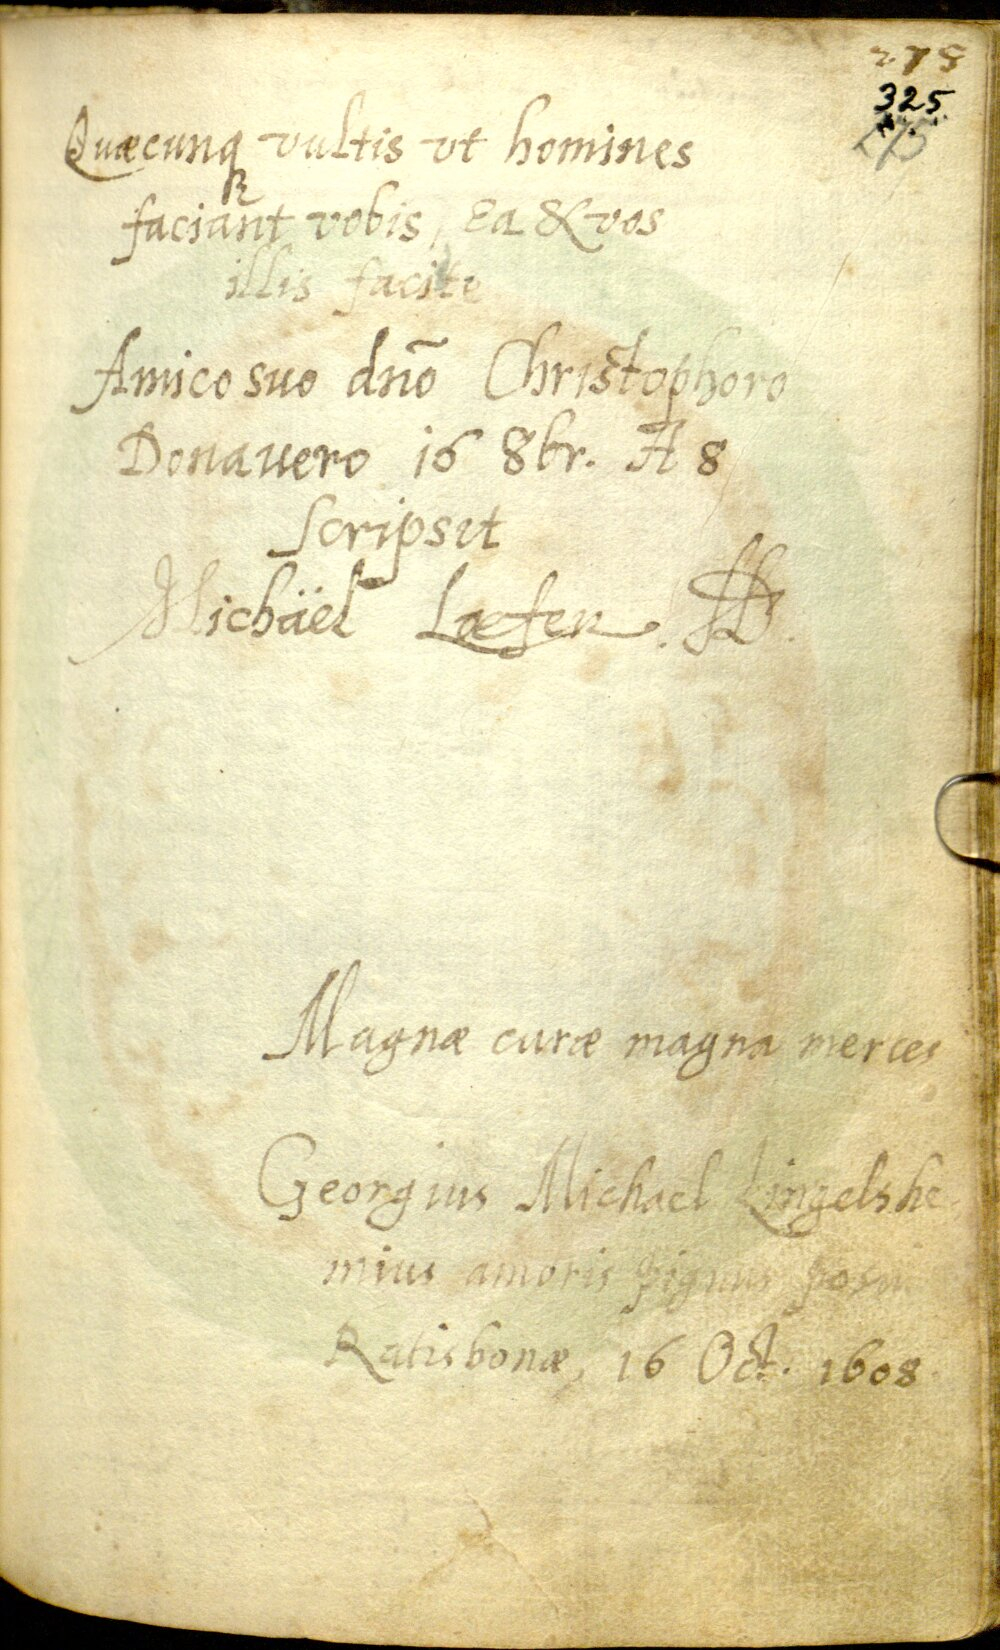 275
325
275
Quæcunq vultis vt homines
faciant vobis, Ea & vos
illis facite
Amico suo dn̄o Christophoro
Donavero 16 8br. A 8
Scripsit
Michäel Læfen
Magnæ curæ magna merces
Georgius Michael Lingelshe
mius amoris pignus posui
Ratisbonæ, 16 Oct. 1608